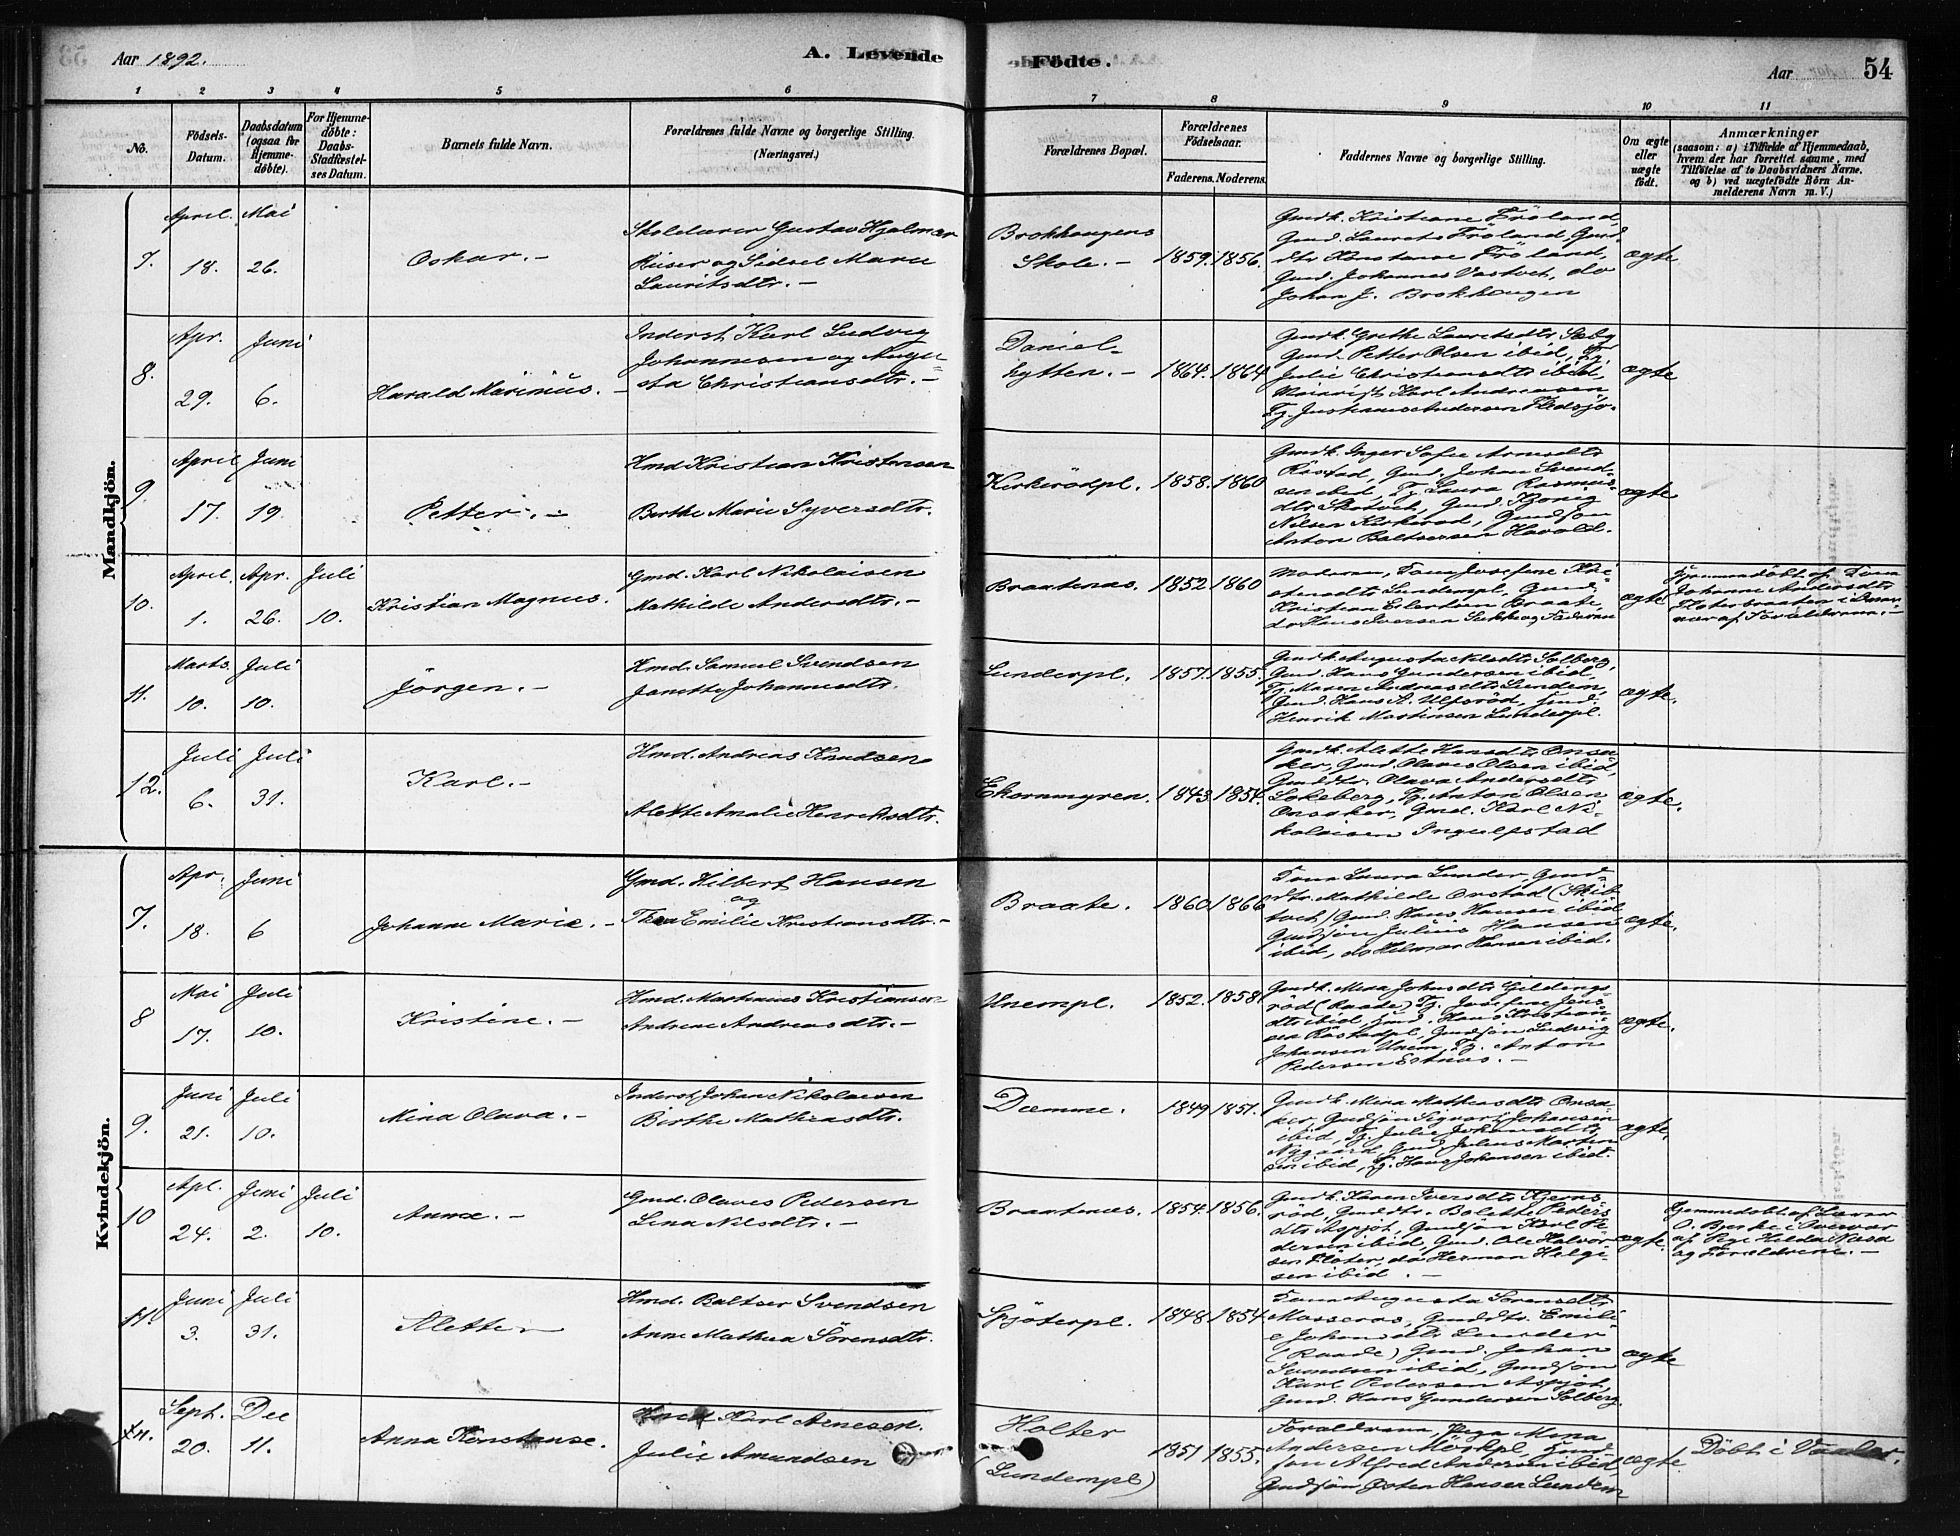 Aar 1892.
A. Levende
Födte.
Aar
54
1 2 3 4 5 6 7 8 9 10 11
No.
Födsels-
Datum.
Daabsdatum
(ogsaa for
Hjemme-
döbte).
For Hjemme-
döbte:
Daabs-
Stadfæstel-
ses Datum.
Barnets fulde Navn.
Forældrenes fulde Navne og borgerlige Stilling.
(Næringsvei.)
Forældrenes Bopæl.
Forældrenes
Födselsaar.
Faderens. Moderens.
Faddernes Navne og borgerlige Stilling.
Om ægte
eller
uægte
födt.
Anmærkninger
(saasom: a) i Tilfælde af Hjemmedaab,
hvem der har forrettet samme, med
Tilföielse af to Daabsvidners Navne,
og b) ved uægtefödte Börn An-
melderens Navn m. V.)
Mandkjön.
7.
April. Mai
18. 26.
Oskar. -
Skolelærer Gustav Hjalmar
Riiser og Sidsel Marie
Lauritsdtr. -
Brokhaugens
Skole. -
1859. 1856.
Gmdk. Kristiane Fröland
Gmd. Laurets Fröland, Gmd.
dtr Konstanse Fröland,
Gmd. Johannes Vastvet, do
Johan J. Brokhaugen
ægte
8.
Apr. Juni
29. 6.
Harald Marinius. -
Inderst Karl Ludvig
Johannesen og Augu=
sta Christiansdtr. -
Daniel-
hytten. -
1864. 1864
Gmdk. Grethe Lauretsdtr
Gmd. Petter Olsen ibid, Tj.
Julie Christiansdtr ibid,
Karl Andreasen
Tj. Andersen
ægte
9.
April Juni
17. 19.
Petter. -
Hmd Kristian Kristensen
Berthe Marie Syversdtr.
Kirkerödpl.
1858. 1860
Gmdk Inger Sofie Arnesdtr
Röstad, Gmd. Johan Svend-
sen ibid, Tj. Laura Rasmus-
dtr Gmd.
Nilsen Kirkeröd, Gmdsön
Anton Baltsersen Havold.
ægte
10.
April. Apr. Juli
1. 26. 10.
Kristian Magnus.
Gmd. Karl Nikolaisen
Mathilde Andersdtr. -
Braatenæs.
1852 1860
Moderen, Josefine Kri-
stensdtr Lundempl, Gmd.
Kristian Elertsen Braate,
do Hans Iversen og Faderen
ægte
Hjemmedöbt af
Johanne Andersdtr
i
nær af Forældrene. -
11.
Marts. Juli
10. 10.
Jörgen. -
Hmd. Samuel Svendsen
Janette Johannesdtr.
Lunderpl.
1857. 1855.
Gmdk. Augusta Nilsdtr Solberg,
Gmd. Hans Gundersen ibid,
Tj. Maren Andreasdtr Lundem,
Gmd. Hans A. Ulfsröd, Gmd.
Henrik Martinsen Lunderpl.
ægte.
12.
Juli Juli
6. 31.
Karl. -
Hmd. Andreas Knudsen
Alette Amalie Henriksdtr.
Ekornmyren.
1843. 1854.
Gmdk. Alette Hansdtr Onsa-
ker, Gmd. Olaves Olsen ibid,
Gmddtr. Olava Andersdtr
Lökeberg, Tj. Anton Olsen
Onsaker, Gmd. Karl Ni-
kolaisen Ingulfstad
ægte.
Kvindekjön.
7.
Apr. Juni
18. 6
Johanne Marie. -
Gmd. Hilbert Hansen
og
Thea Emilie Kristiansdtr. -
Braate.
1860. 1866
Laura Lunder, Gmd-
dtr. Mathilde Onstad (Skib-
tvet) Gmd. Hans Hansen ibid
Gmdsön Julius Hansen
ibid, do Hilmar Hansen ibid.
ægte.
8
Mai Juli
17. 10.
Kristine. -
Hmd. Martinius Kristiansen
Andrine Andreasdtr. -
Unempl.
1852. 1858.
Gmdk. Mina Johnsdtr Gildings-
röd (Raade) Tj. Josefine Jens-
dtr ibid, Gmd. Hans Kristian-
sen Röstadpl, Gmdsön Ludvig
Johansen Unem, Tj. Anton
Pedersen -
ægte.
9.
Juni Juli
21. 10.
Mina Olava. -
Inderst Johan Nikolaisen
Birthe Mathiasdtr.
Dæmme.
1849 1851.
Gmdk. Mina Mathiasdtr Onsa-
ker, Gmdsön Sigvart Johansen
ibid, Tj. Julie Johansdtr
Nygaard, Gmd Julius Marten-
sen ibid, Tj. Hans Johansen ibid.
ægte.
10
Apl. Juni Juli
24. 2. 10.
Anna. -
Gmd. Olaves Pedersen
Lina Nilsdtr. -
Braatenes.
1854. 1856.
Gmdk. Karen Iversdtr Kjerns-
röd, Gmddtr. Bolette Peders-
dtr Aspjöt, Gmdsön Karl Pe-
dersen ibid, Gmd. Ole Halvor-
sen Flöter, do Herman Helge-
sen ibid. -
ægte.
Hjemmedöbt af
O. Bjerke i
af Pige Hilda
og Forældrene. -
11.
Juni Juli
3. 31.
Alette
Hmd. Baltser Svendsen
Anne Mathea Sörensdtr.
Spjöterpl.
1848 1854.
Augusta Sörensdtr
Mosserös, Gmddtr. Emili-
e Johansdtr Lunder
(Raade) Gmd. Johan
Svendsen ibid, Gmdsön
Karl Pedersen Aspjöt,
Gmd. Hans Gundersen Solberg
ægte
Sept. Dec
20. 11.
Anna Konstanse.
Hmd Karl Arnesen.
Julie Amundsen
Holter
(Lundempl)
1851 1855.
Forældrene, Pige Mina
Andersen Moskpl, Gmd-
sön Alfred Andersen ibid,
Gmdsön Östen Hansen Lundem
ægte
Döbt i Vaaler.